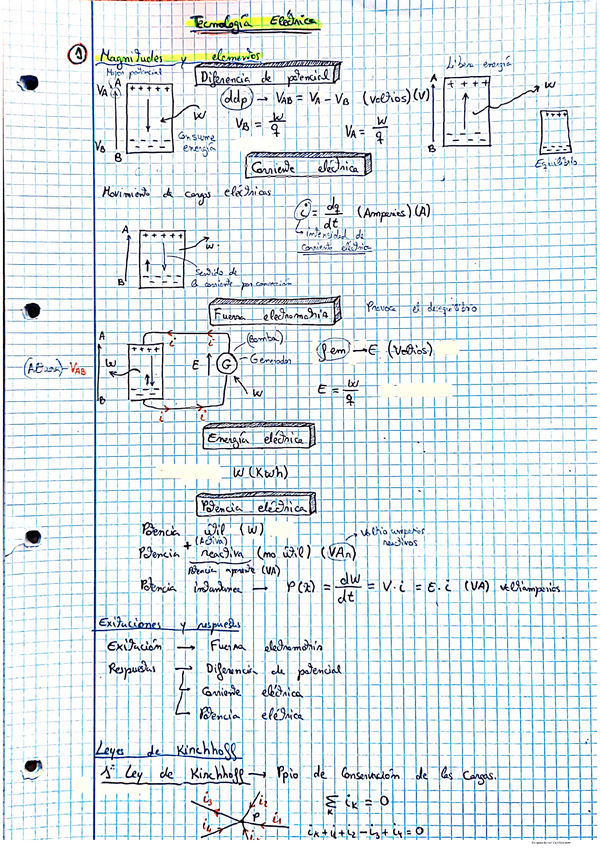 Tecnología Eléctrica
1 Magnitudes y elementos
Mejor potencial
Diferencia de potencial
Libera energía
VA A
+ + + + +
W
ddp → VAB = VA - VB (Voltios) (V)
VB = W/q
VA = W/q
Consume energía
VB B
A
+ + + +
W
B
Equilibrio
Corriente eléctrica
Movimiento de cargas eléctricas
i = dq/dt (Amperios) (A)
intensidad de
corriente eléctrica
A
+ + + + +
W
B
Sentido de
la corriente por convención
Fuerza electromotriz
Provoca el desequilibrio
A
i i
(Bomba)
Generador
+ + + + +
VAB
W
E
G
W
B
i i
fem → E (Voltios)
E = W/q
Energía eléctrica
W (Kwh)
Potencia eléctrica
Potencia útil (W)
+ (Activa)
Potencia reactiva (no útil) (VAr)
voltio amperios
reactivos
Potencia aparente (VA)
Potencia instantanea → P(t) = dW/dt = V·i = E·i (VA) voltiamperios
Exitaciones y respuestas
Exitación → Fuerza electromotriz
Respuestas → Diferencia de potencial
Corriente eléctrica
Potencia eléctrica
Leyes de Kirchhoff
1ª Ley de Kirchhoff → Ppio de Conservación de las Cargas.
i3 i2
P i1
i4
Σ iK = 0
K
iK + i1 + i2 - i3 + i4 = 0